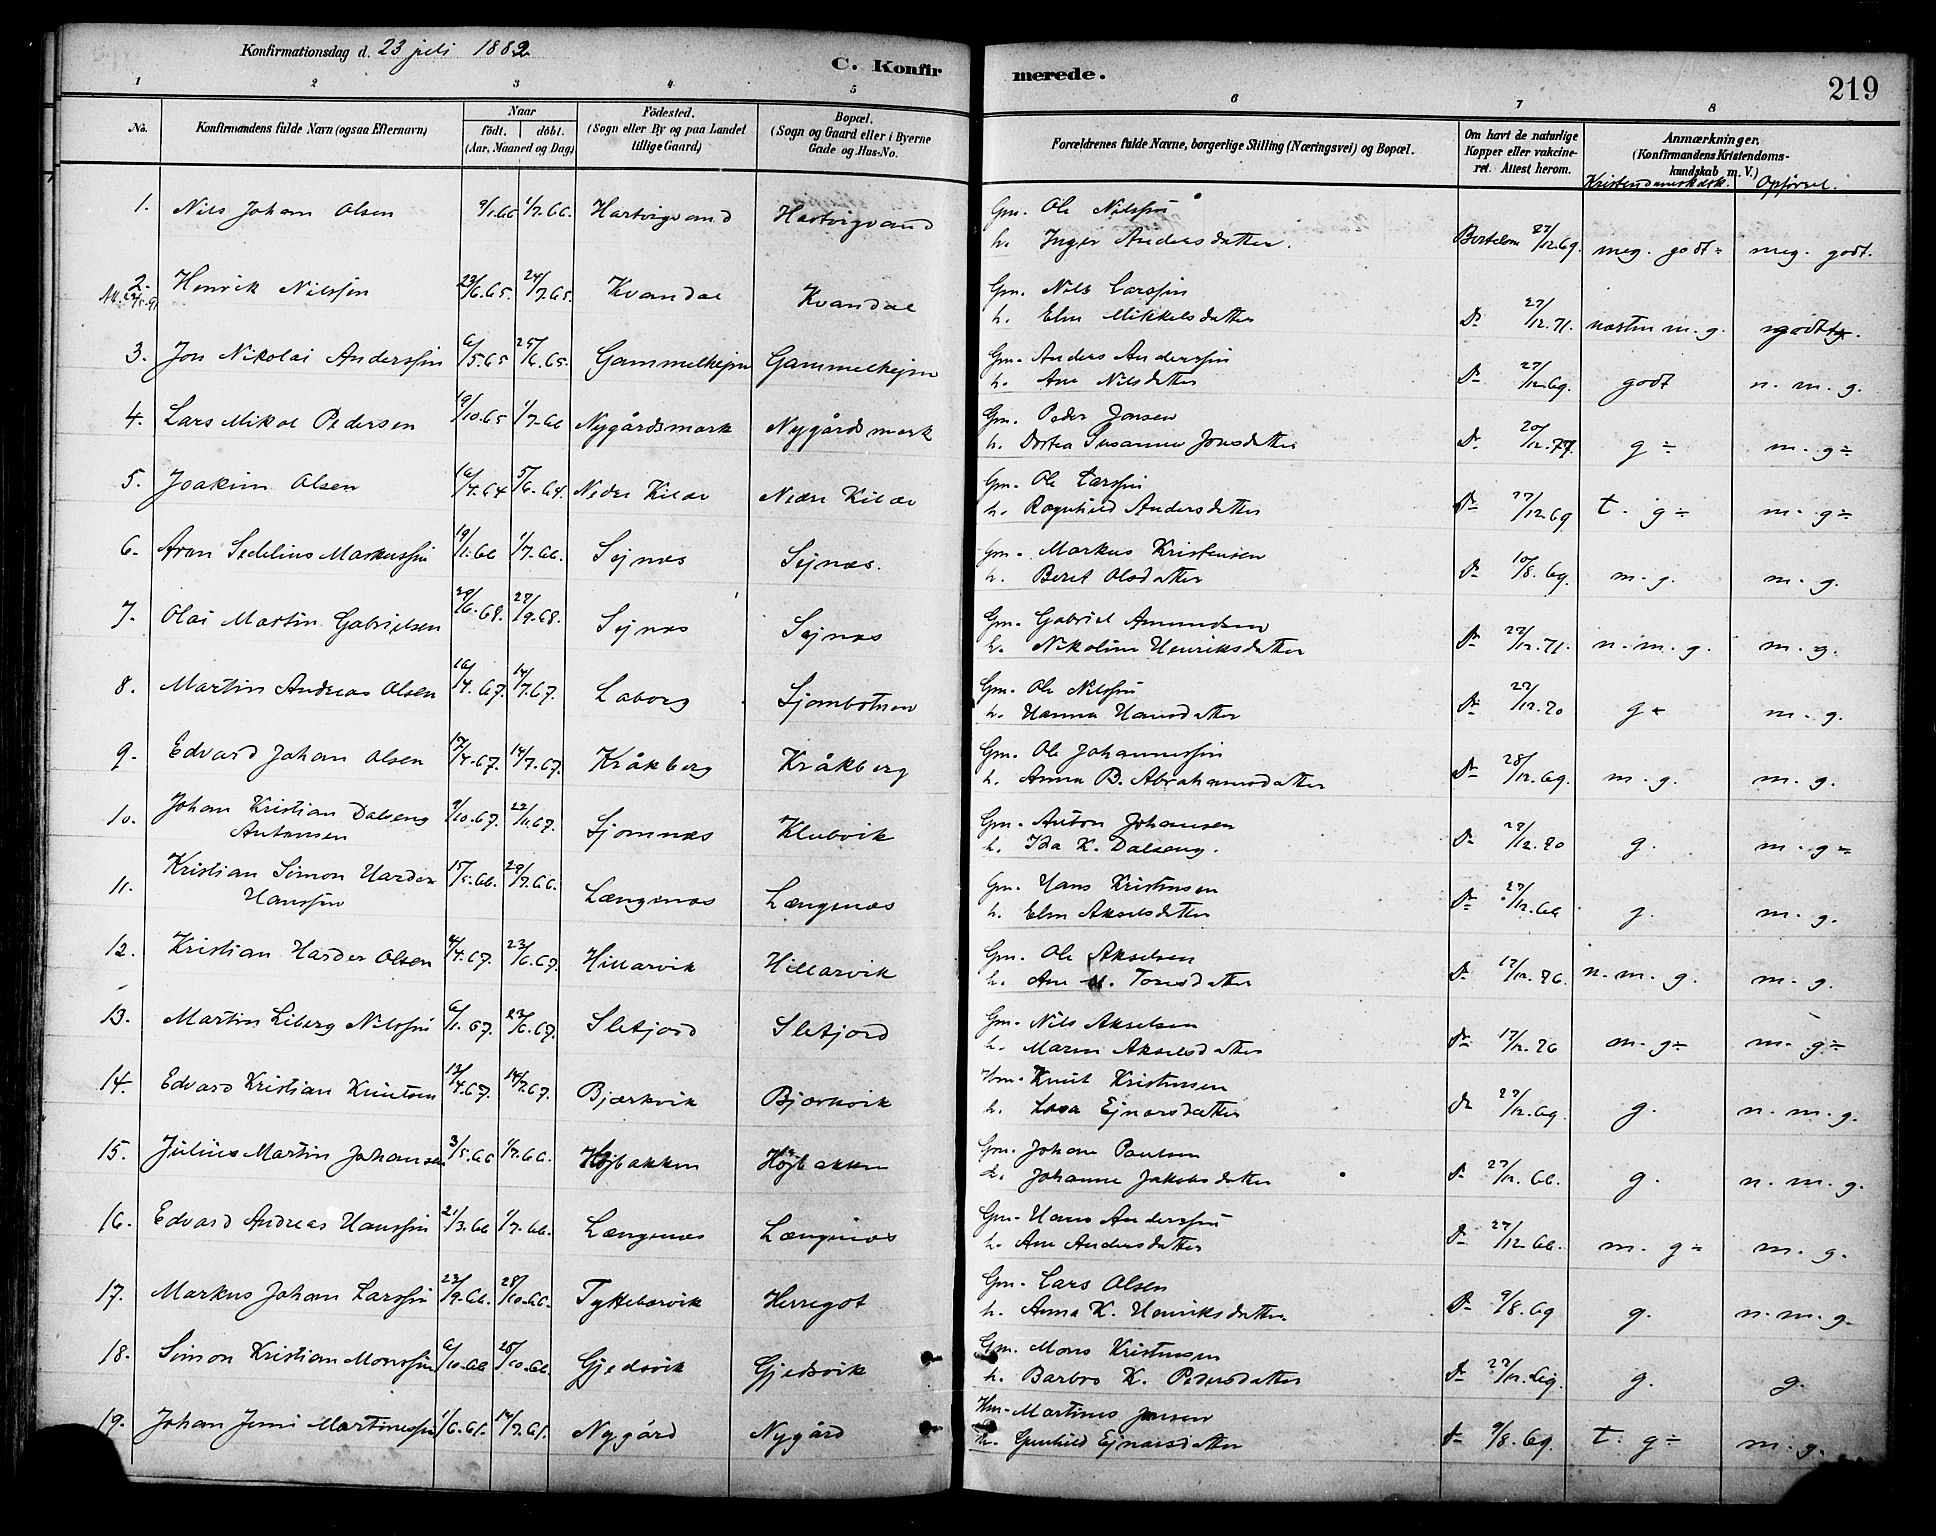 Konfirmationsdag d. 23 juli 1882
C. Konfirmerede.
219
1 2 3 4 5 6 7 8
No.
Konfirmandens fulde Navn (ogsaa Efternavn)
Naar
födt. döbt.
(Aar, Maaned og Dag)
Födested.
(Sogn eller By og paa Landet
tillige Gaard)
Bopæl.
(Sogn og Gaard eller i Byerne
Gade og Hus-No.
Forældrenes fulde Navne, borgerlige Stilling (Næringsvei) og Bopæl.
Om havt de naturlige
Kopper eller vakcine-
ret. Attest herom.
Anmærkninger.
(Konfirmandens Kristendoms-
kundskab m. V.)
Kristendomskdsk. Opförsel.
1. Nils Johan Olsen 9/1.66 1/7.66. Hartvigvand Hartvigvand Gm. Ole Nilssen
h. Inger Andersdatter. 27/12.69. meg. godt ÷ meg. godt.
2. Henrik Nilssen 23/6.65. 24/7.65. Kvandal Kvandal Gm. Nils Larssen
h. Elen Mikkelsdatter Do 27/12.71. næsten m. g. godt
3. Jon Nikolai Anderssen 6/5.65 25/6.65. Gammelhejm Gammelhejm Gm. Anders Anderssen
h. Ane Nilsdatter Do 27/12.69. godt n. m. g.
4. Lars Mikal Pedersen 19/10.65 1/7.66 Nygårdsmark Nygårdsmark Gm. Peder Jonsen
h. Dortea Susanna Jonsdatter Do 20/12.77. g ÷ m. g ÷
5. Joakim Olsen 16/4.64 5/6.64. Nedre Kilde Nedre Kilde Gm. Ole Larssen
h. Ragnhild Andersdatter Do 27/12.69 t. g ÷ m. g ÷
6. Aron Sedelius Markussen 19/1.66 1/7.66. Sejnes Sejnes. Gm. Markus Kristensen
h. Beret Olsdatter Do 10/8.69. m. g. m. g.
7. Olai Martin Gabrielsen 20/6.68. 27/9.68. Sejnes Sejnes Gm. Gabriel Amundsen
h. Nikoline Henriksdatter Do 27/12.71. n. m. g. m. g.
8. Martin Andreas Olsen 16/4.67. 14/7.67. Laberg Sjombotnen Gm. Ole Nilssen
h. Hanna Hansdatter Do 27/12.70 g ÷ m. g.
9. Edvard Johan Olsen 17/4.67. 14/7.67. Kråkberg Kråkberg Gm. Ole Johannessen
h. Anna B. Abrahamsdatter Do 28/12.69. m. g. m. g.
10. Johan Kristian Dalseng
Antonsen 9/10.67. 22/11.67. Sjomnæs Klubvik Gm. Anton Johansen
h. Ida K. Dalseng. Do 27/12.70 g. m. g ÷
11. Kristian Simon Harder
Hanssen 15/5.66. 29/7.66. Længenæs Længenæs Gm. Hans Kristensen
h. Elen Akselsdatter Do 27/12.66 g. m. g.
12. Kristian Harder Olsen 4/4.67. 23/6.67. Hillarvik Hillarvik Gm. Ole Akselsen
h. Ane M. Tonesdatter Do 17/12.76. n. m. g. m. g.
13. Martin Liberg Nilssen 6/1.67. 23/6.67. Sletjord Sletjord Gm. Nils Akselsen
h. Maren Akselsdatter Do 17/12.76 m. g ÷ m. g ÷
14. Edvard Kristian Knutsen 12/4.67. 14/7.67. Bjærkvik Bjærkvik Hm. Knut Kristensen
h. Lova Ejnarsdatter Do 27/12.69. g. n. m. g.
15. Julius Martin Johansen 3/5.66 1/7.66. Højbakken Højbakken Gm. Johan Paulsen
h. Johanne Jakobsdatter Do 27/12.66. g. n. m. g.
16. Edvard Andreas Hanssen 21/3.66 1/7.66. Længenæs Længenæs Gm. Hans Anderssen
h. Ane Andersdatter Do 27/12.66. m. g ÷ m. g.
17. Markus Johan Larssen 22/9.66. 28/10.66. Tyttebærvik Herregot Gm. Lars Olsen
h. Anna K. Henriksdatter. Do 9/8.69 g. n. m. g.
18. Simon Kristian Monssen 6/10.66 28/10.66. Gjedsvik Gjedsvik Gm. Mons Kristensen
h. Barbro K. Pedersdatter Do 27/12.69. g. g.
19. Johan Jemi Martinussen 1/6.61. 14/7.61. Nygård Nygård Hm. Martinus Jensen
h. Gunhild Ejnarsdatter Do 9/8.69. t. g ÷ m. g.